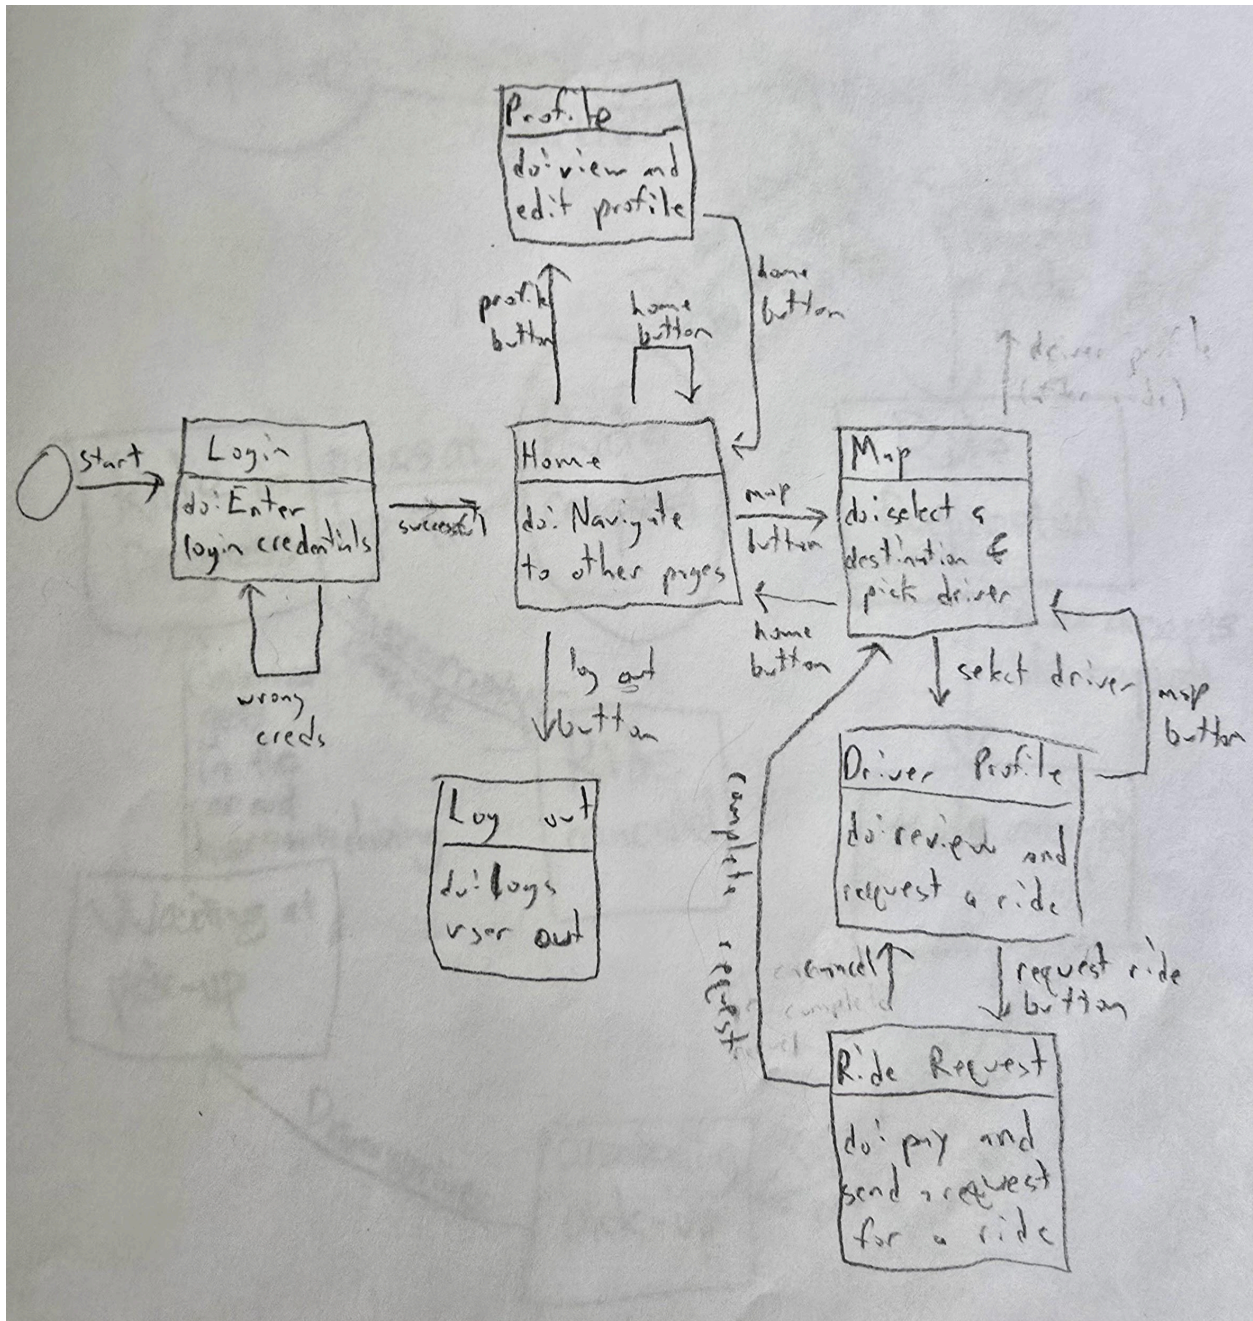 Profile
do: view and
edit profile
profile
button
home
button
home
button
start
Login
do: Enter
login credentials
successful
wrong
creds
Home
do: Navigate
to other pages
map
button
home
button
Map
do: select a
destination &
pick driver
log out
button
select driver
map
button
Log out
do: Logs
user out
Driver Profile
do: review and
request a ride
complete request
cancel
request ride
button
Ride Request
do: pay and
send a request
for a ride